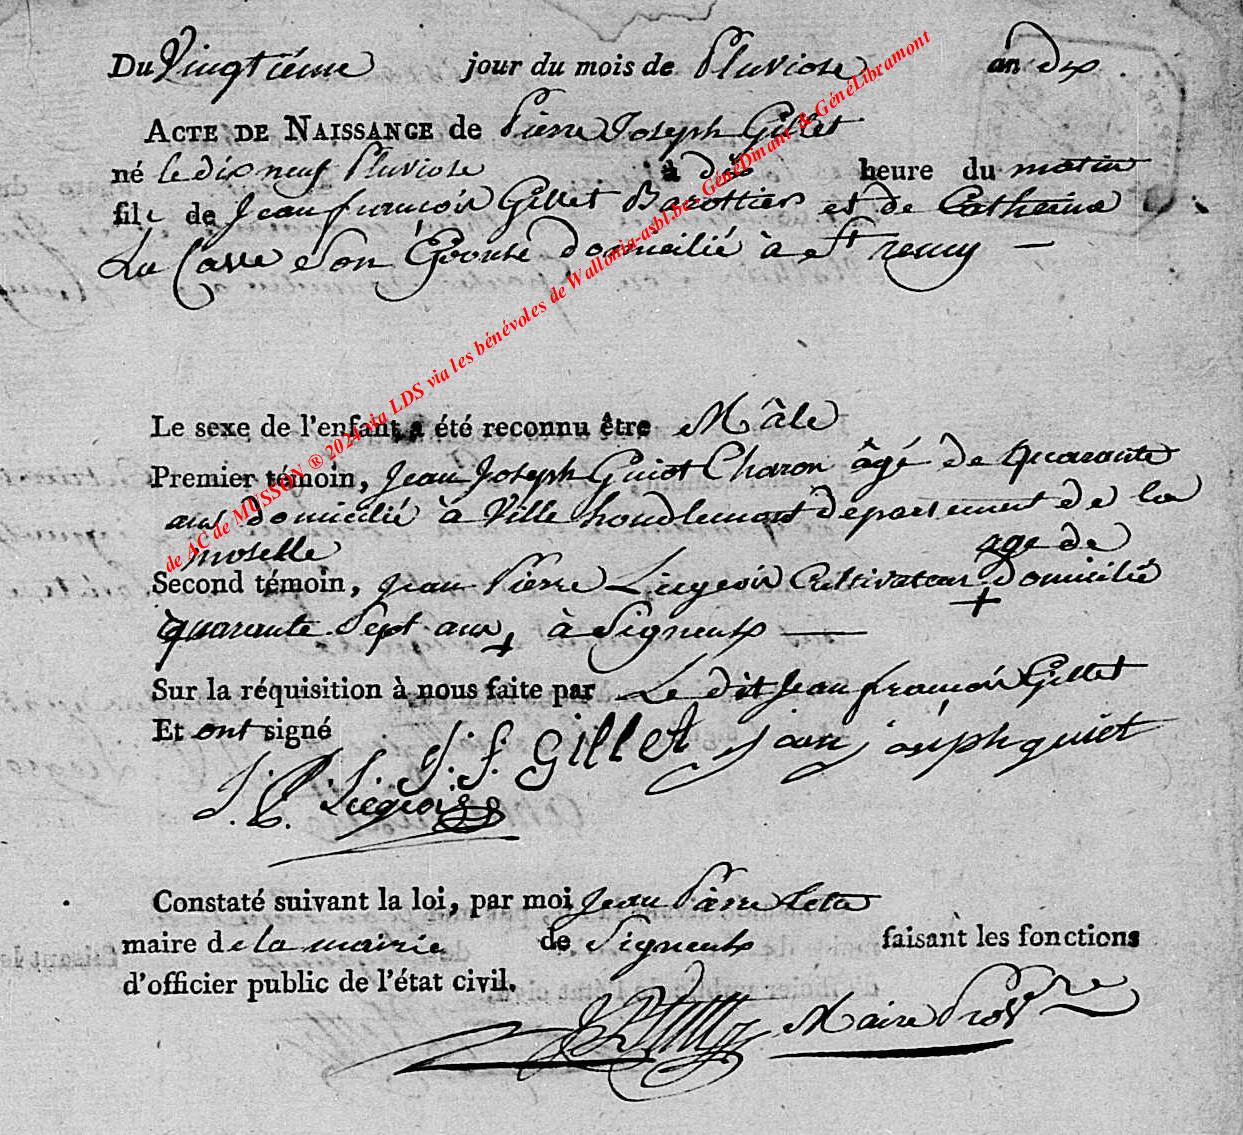 Du Vingtiéme jour du mois de Pluviose an dix.
ACTE DE NAISSANCE de Pierre Joseph Gillet
né le dix neuf Pluviose à dix heure du matin
fils de Jean françois Gillet et de Catherine
La Cave Son Epouse domicilié à St remy —
Le sexe de l'enfant a été reconnu être Mâle
Premier témoin, Jean Joseph Guiot Charon âgé de quarante
ans domicilié à Ville houdlemont departement de la
moselle
age de
Second témoin, Jean Pierre Liegeois Cultivateur + domicilié
quarante Sept ans + à Signeulx —
Sur la réquisition à nous faite par Le dit Jean françois Gillet
Et ont signé
J: f: Gillet jean joseph guiot
J. P. Liegeois
Constaté suivant la loi, par moi Jean Pierre
maire de la mairie de Signeulx faisant les fonctions
d'officier public de l'état civil.
Maire Provre
de AC de MUSSON ® 2024 via LDS via les bénévoles de Wallonia-asbl.be, GénéDinant & GénéLibramont